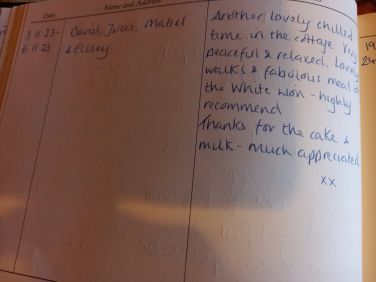 Date
Name and Address
3.11.23-
6.11.23
Carol, Mabel
&
Another lovely chilled
time in the cottage. Very
peaceful & relaxed. Lovely
walks & fabulous meal
the White Lion - highly
recommend
Thanks for the cake &
milk - much appreciated
xx
19
24